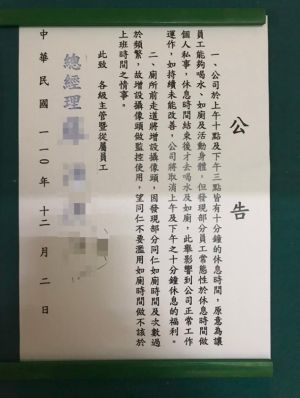 公告
一、公司於上午十點及下午三點皆有十分鐘的休息時間，原意為讓
員工能夠喝水、如廁及活動身體，但發現部分員工常態性於休息時間做
個人私事，休息時間結束後才去喝水及如廁，此舉影響到公司正常工作
運作，如持續未能改善，公司將取消上午及下午之十分鐘休息的福利。
二、廁所前走道將增設攝像頭，因發現部分同仁如廁時間及次數過
於頻繁，故增設攝像頭做監控使用，望同仁不要濫用如廁時間做不該於
上班時間之情事。
此致 各級主管暨從屬員工
總經理
中華民國一一〇年十二月二日